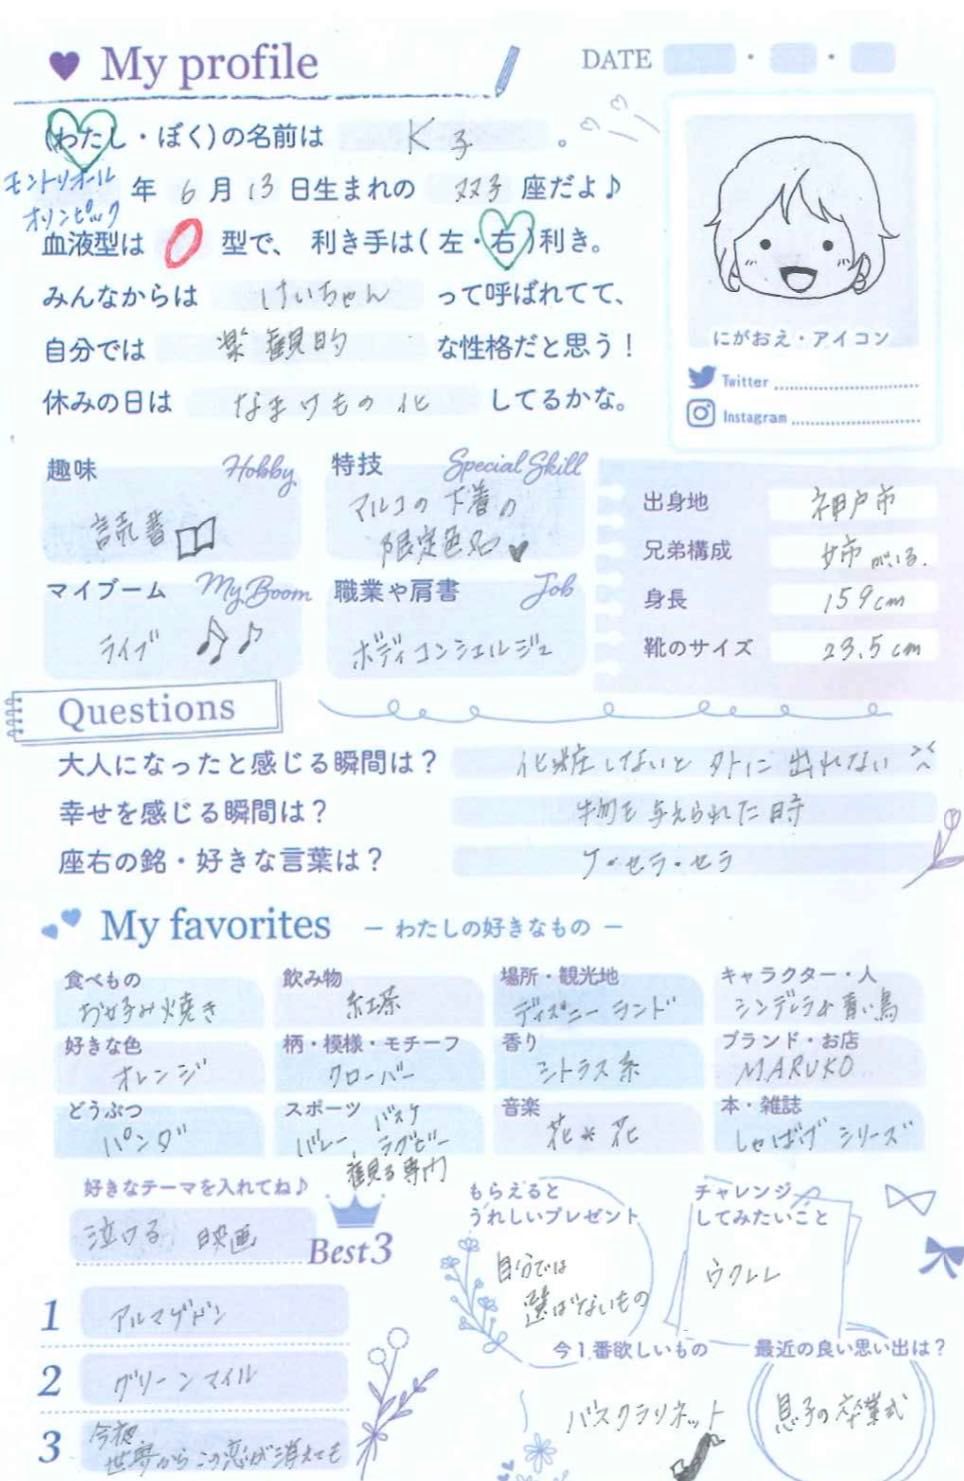 My profile
DATE ・ ・
(わたし・ぼく)の名前は K子 。
モントリオール
オリンピック
年 6月 13日生まれの 双子 座だよ♪
血液型は O 型で、利き手は(左・右)利き。
みんなからは けいちゃん って呼ばれてて、
自分では 楽観的 な性格だと思う!
休みの日は なまけもの化 してるかな。
にがおえ・アイコン
Twitter
Instagram
趣味 Hobby
読書
特技 Special Skill
マルコの下着の
限定色名♥
マイブーム My Boom
ライブ ♪♪
職業や肩書 Job
ボディコンシェルジュ
出身地 神戸市
兄弟構成 姉がいる.
身長 159cm
靴のサイズ 23.5cm
Questions
大人になったと感じる瞬間は? 化粧しないと外に出れない
幸せを感じる瞬間は? 物を与えられた時
座右の銘・好きな言葉は? ケ・セラ・セラ
My favorites ー わたしの好きなもの ー
食べもの
お好み焼き
飲み物
紅茶
場所・観光地
ディズニーランド
キャラクター・人
シンデレラの青い鳥
好きな色
オレンジ
柄・模様・モチーフ
クローバー
香り
シトラス系
ブランド・お店
MARUKO
どうぶつ
パンダ
スポーツ バスケ
バレー、ラグビー
観る専門
音楽
花*花
本・雑誌
しゃばけシリーズ
好きなテーマを入れてね♪
泣ける 映画
Best3
1 アルマゲドン
2 グリーンマイル
3 今夜
世界からこの恋が消えても
もらえると
うれしいプレゼント
自分では
選ばないもの
チャレンジ
してみたいこと
ウクレレ
今1番欲しいもの
バスクラリネット
最近の良い思い出は?
息子の卒業式